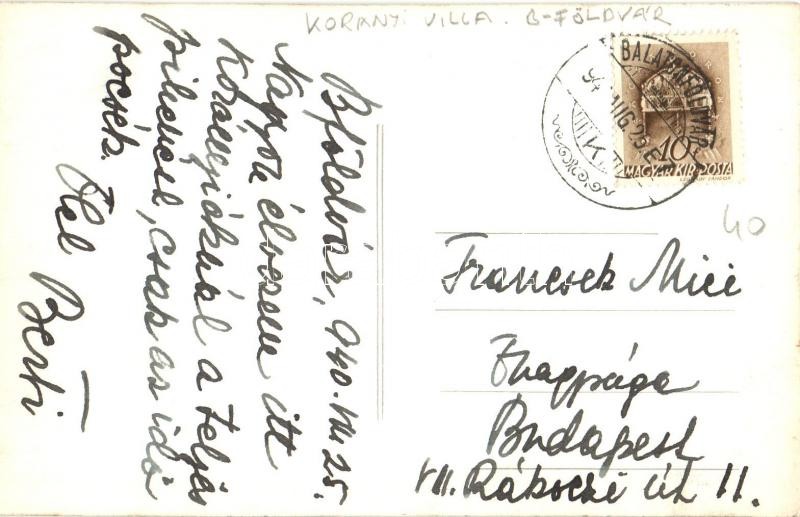 KORANYI VILLA. B-FÖLDVÁR
BALATONFÖLDVÁR
940 AUG. 25
10
MAGYAR KIR. POSTA
40
B földvár, 940. VIII. 25.
Nagyon élvezem itt
Korányiéknál a teljes
pihenést, csak az idő
pocsék. Ölel
Berti
Francsek Mici
Őnagysága
Budapest
VII. Rákóczi út 11.